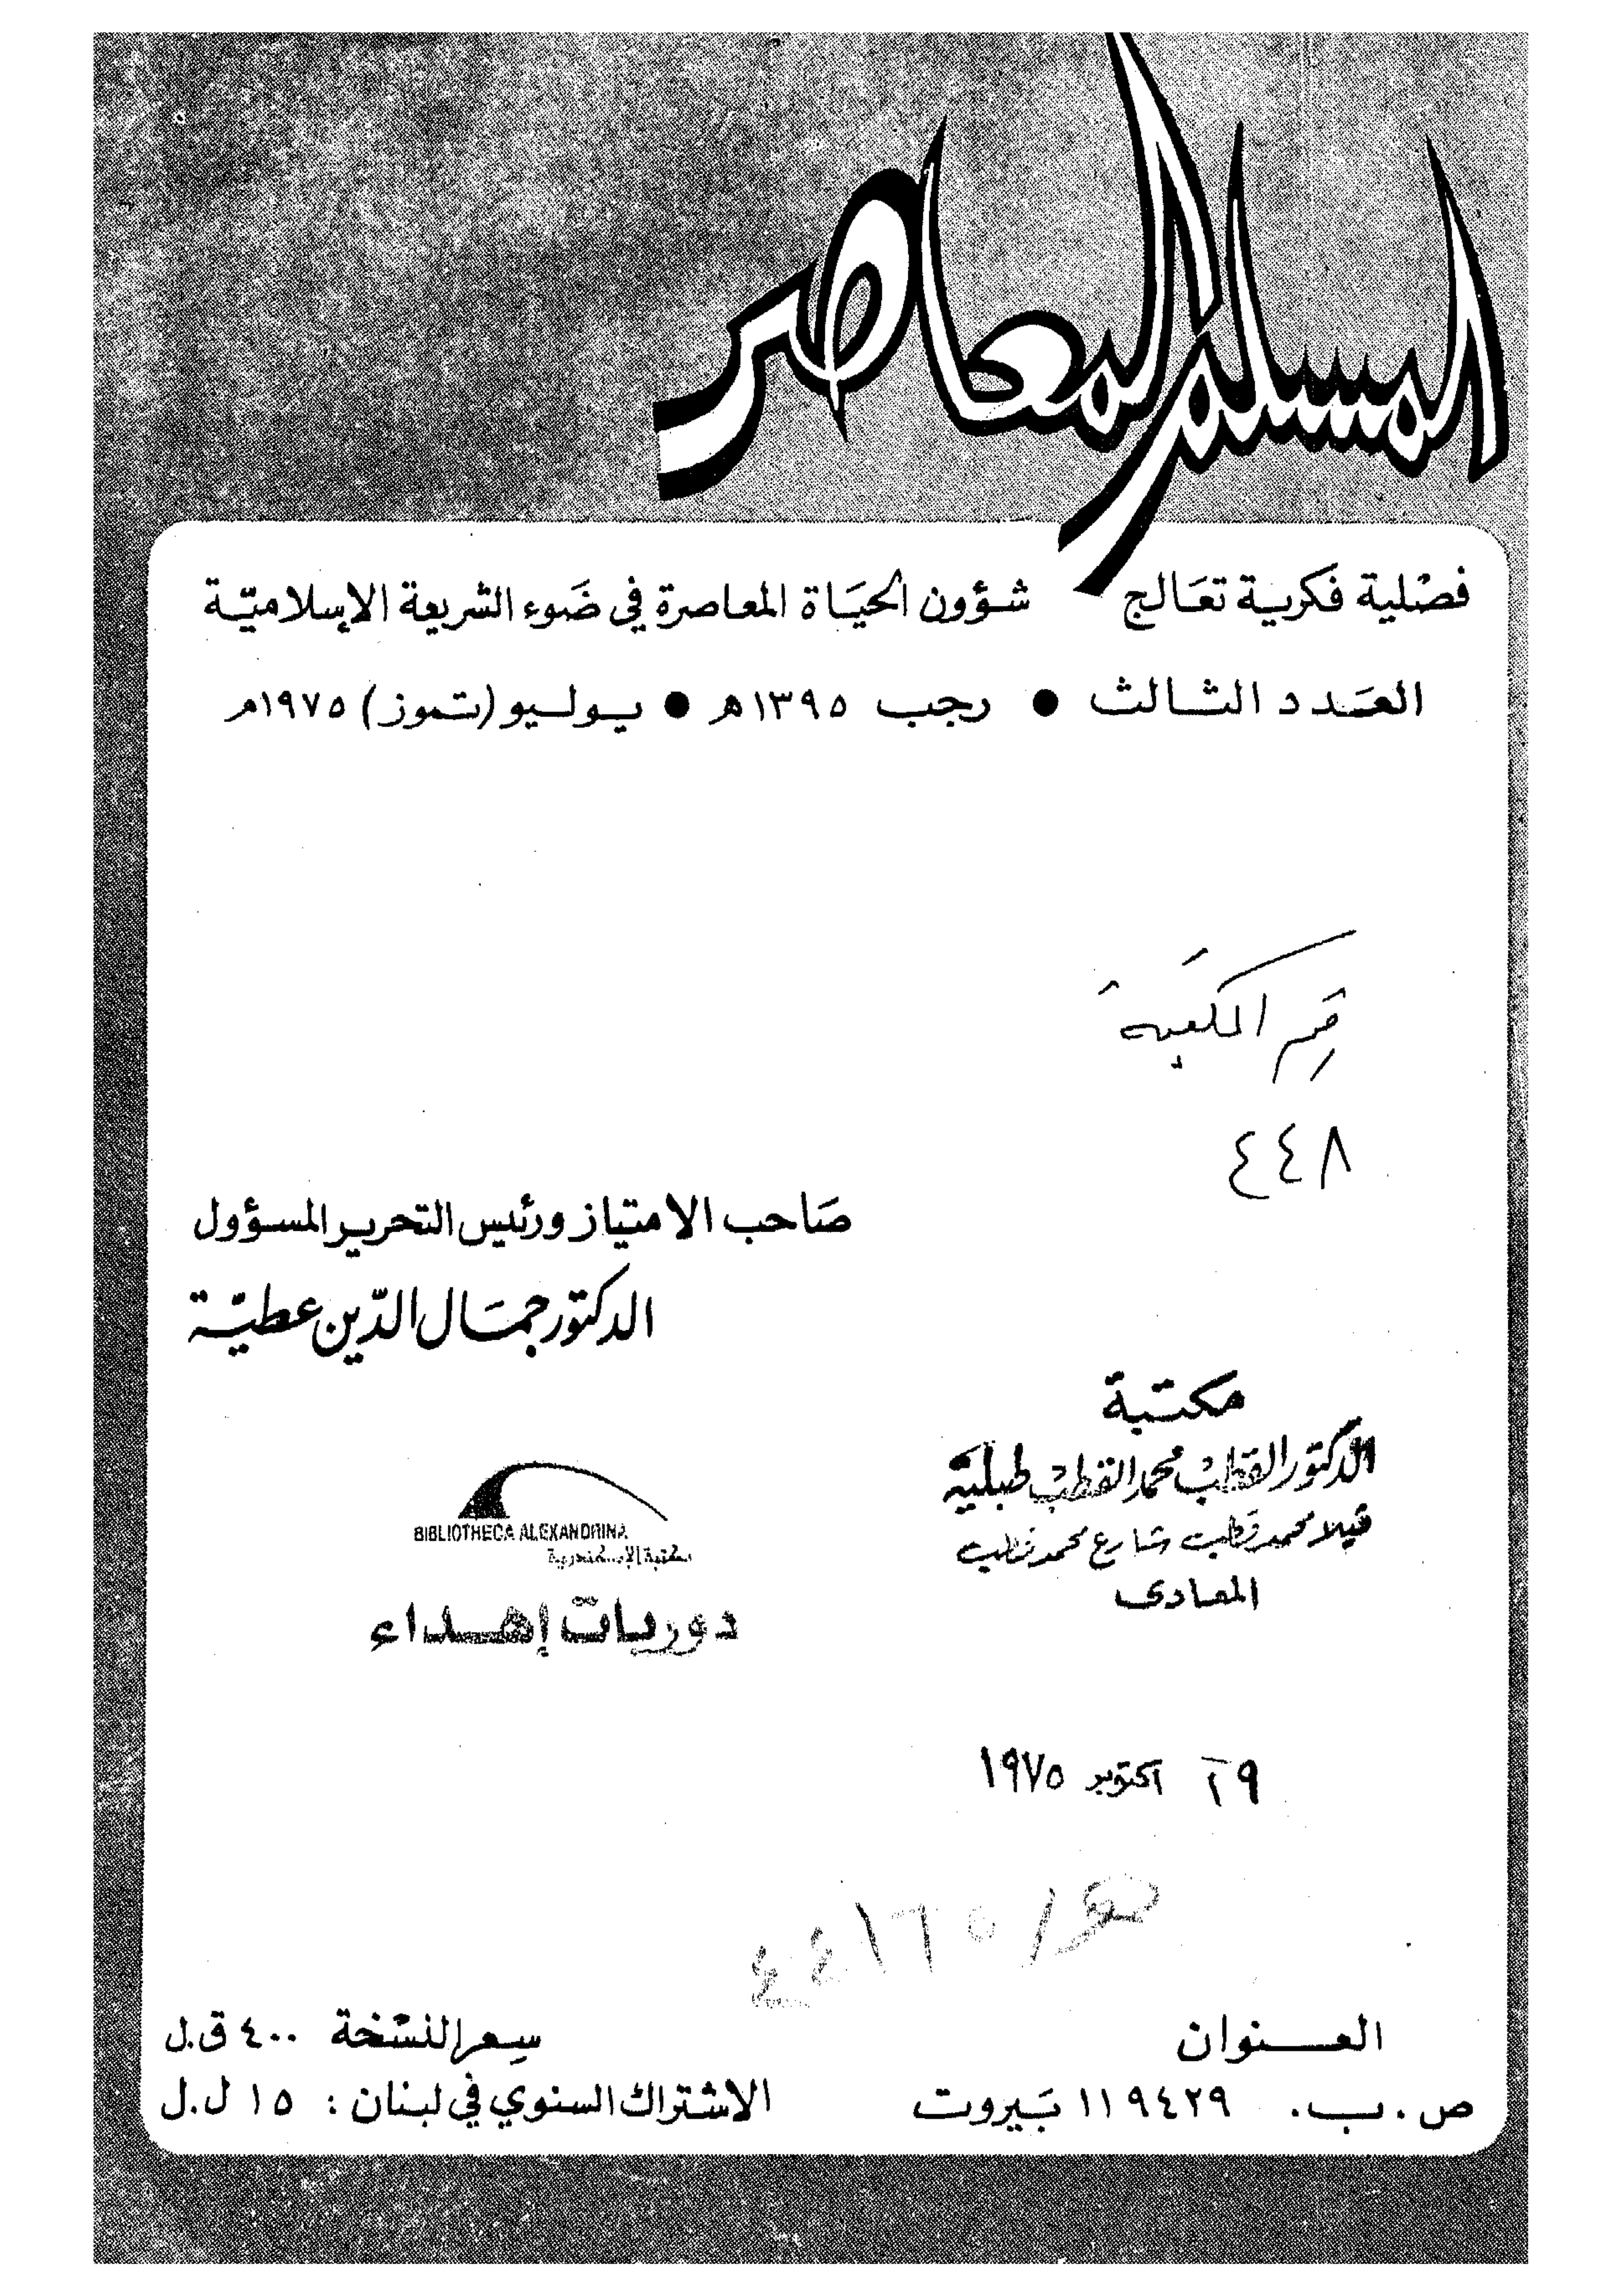 المسلم المعاصر
فصلية فكرية تعالج شؤون الحياة المعاصرة في ضوء الشريعة الإسلامية
العدد الثالث ● رجب ١٣٩٥ه ● يوليو (تموز) ١٩٧٥م
المكتبة
٤٤٨
صاحب الامتياز ورئيس التحرير المسؤول
الدكتور جمال الدين عطية
مكتبة
الدكتور القطب محمد القطب طبلية
فيلا محمد قطب شارع محمد قطب
المعادى
BIBLIOTHECA ALEXANDRINA
مكتبة الإسكندرية
دوريات إهداء
٢٩ اكتوبر ١٩٧٥
العنوان
ص.ب. ١١٩٤٢٩ بيروت
سعر النسخة ٤٠٠ ق.ل
الاشتراك السنوي في لبنان : ١٥ ل.ل